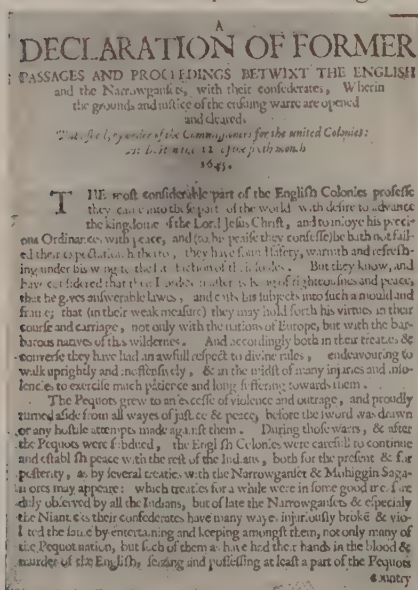 A
DECLARATION OF FORMER
PASSAGES AND PROCEEDINGS BETWIXT THE ENGLISH
and the Narrowgansets, with their confederates, Wherein
the grounds and iustice of the ensuing warre are opened
and cleared.
Published, by order of the Commissioners for the united Colonies:
At Boston the 11 of the sixth month
1645.
THE most considerable part of the English Colonies professe
they came into these parts of the world with desire to advance
the kingdome of the Lord Jesus Christ, and to injoye his preci-
ous Ordinances with peace, and (to his praise they confesse) he hath not fail-
ed their expectation hitherto, they have found safety, warmth and refresh-
ing under his wing to the satisfaction of their soules. But they know, and
have considered that their Lord & master is king of righteousnes and peace,
that he gives answerable lawes, and casts his subjects into such a mould and
frame; that (in their weak measure) they may hold forth his virtues in their
course and carriage, not only with the nations of Europe, but with the bar-
barous natives of this wildernes. And accordingly both in their treaties &
converse they have had an awfull respect to divine rules, endeavouring to
walk uprightly and inoffensively, & in the midst of many injuries and inso-
lencies to exercise much patience and long suffering towards them.
The Pequots grew to an excesse of violence and outrage, and proudly
turned aside from all wayes of justice & peace, before the sword was drawn
or any hostile attempts made against them. During those warrs, & after
the Pequots were subdued, the English Colonies were carefull to continue
and establish peace with the rest of the Indians, both for the present & for
posterity, as by severall treaties with the Narrowganset & Mohiggin Saga-
mores may appeare: which treaties for a while were in some good
duly observed by all the Indians, but of late the Narrowgansets & especialy
the Nianticks their confederates have many wayes injuriously broken & vio-
lated the same by entertaining and keeping amongst them, not only many of
the Pequot nation, but such of them as have had their hands in the blood &
murder of the English, seazing and possessing at least a part of the Pequots
Country